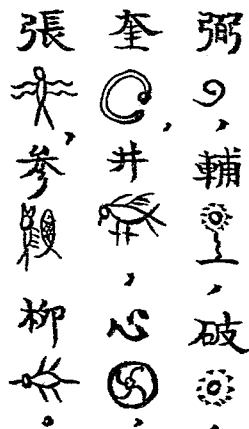 弼，
輔，
破，
奎，
井，
心，
張，
參
柳。